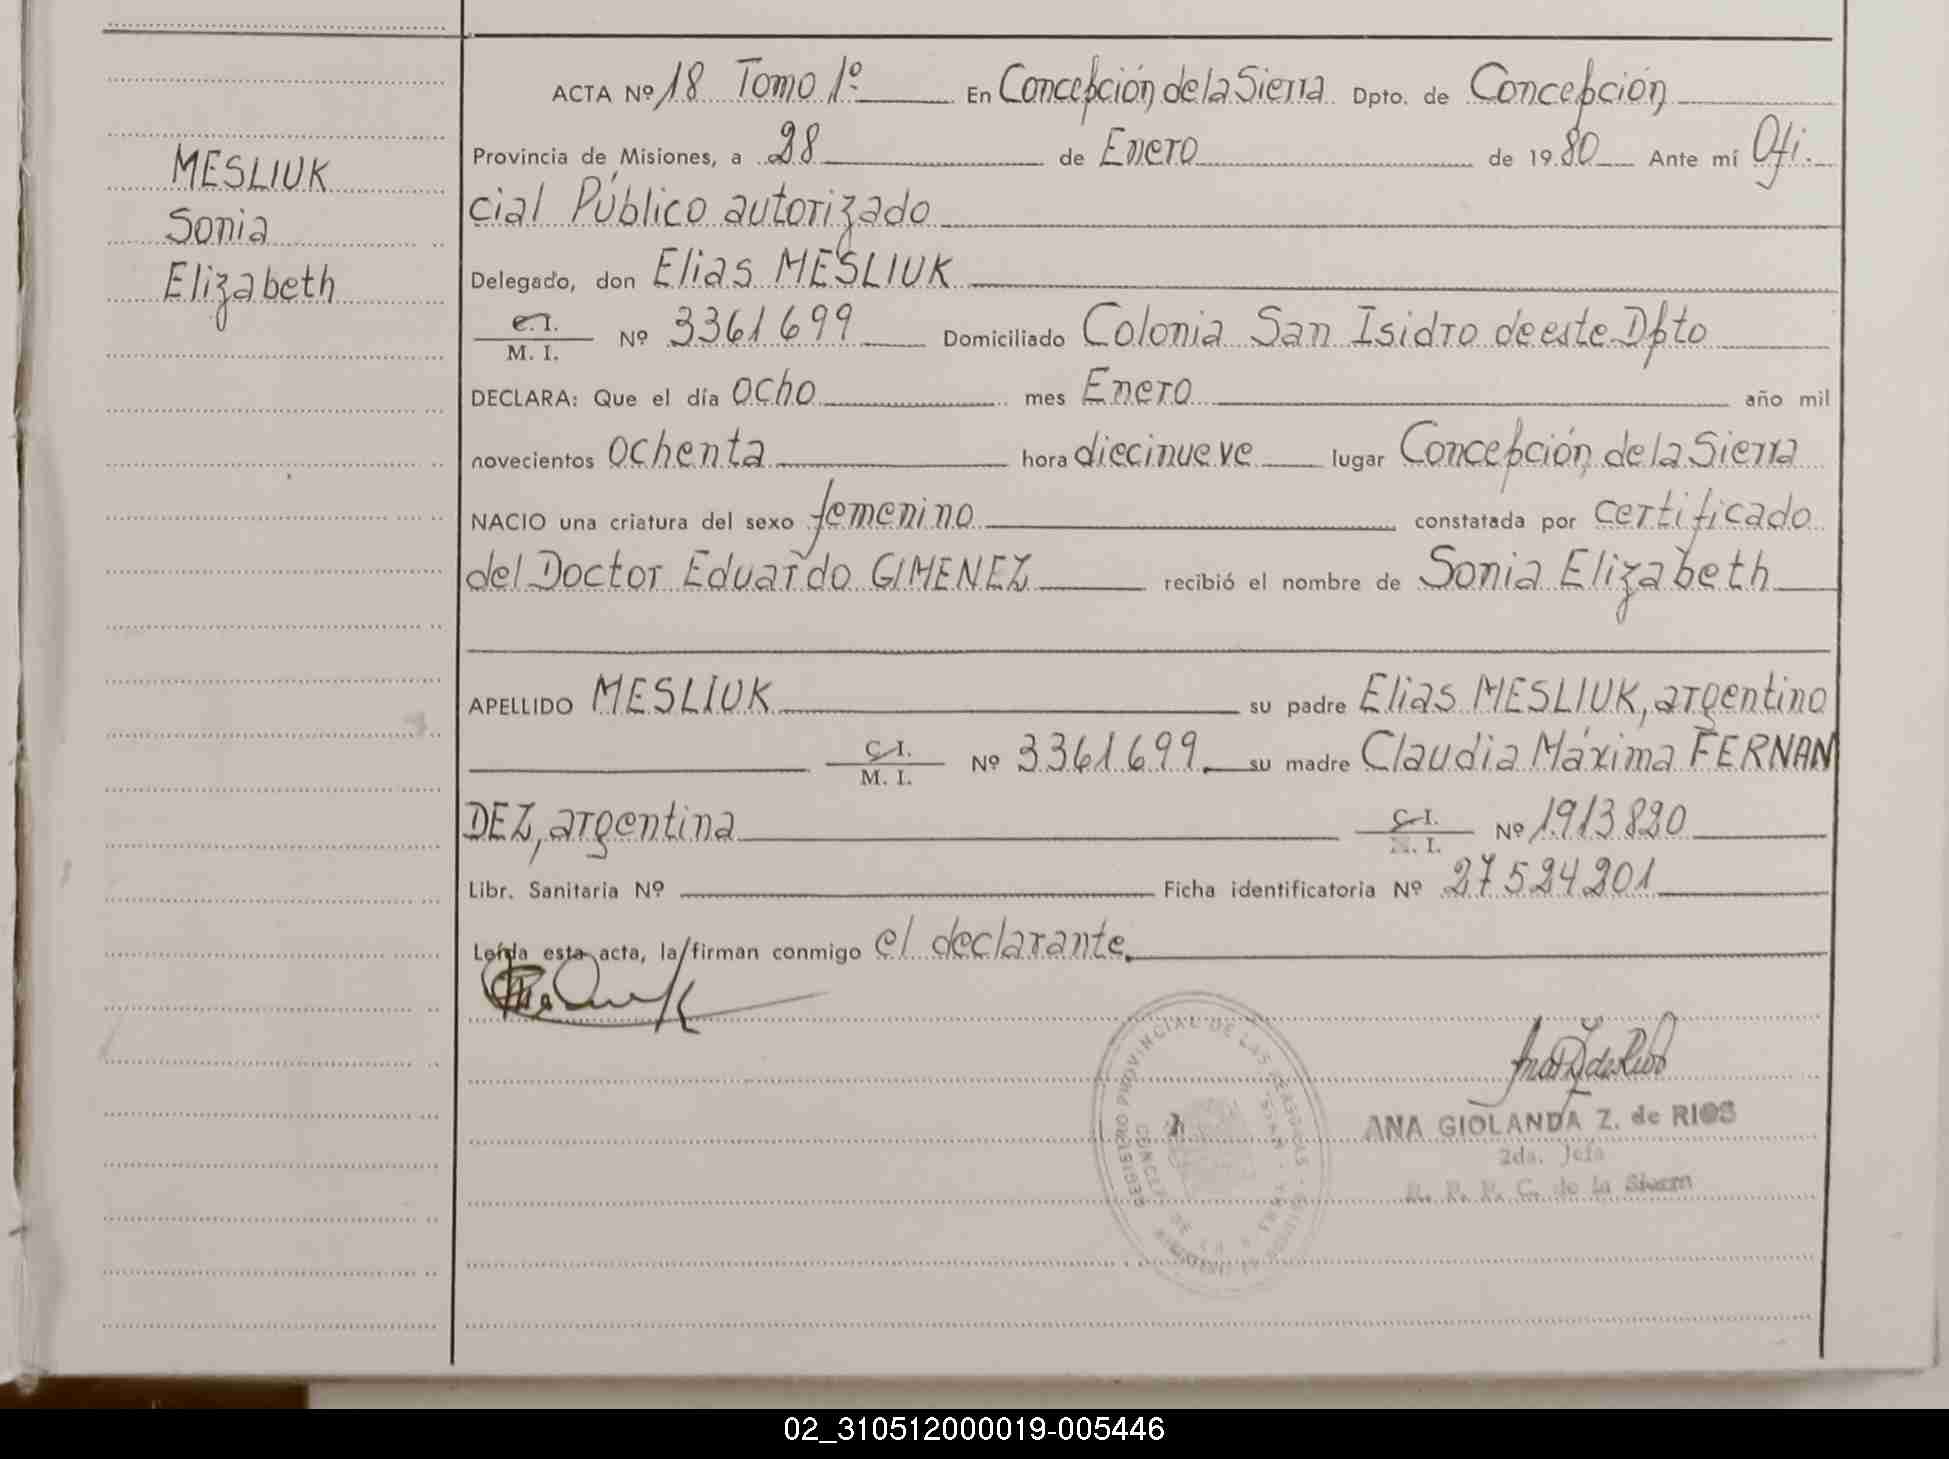 MESLIUK
Sonia
Elizabeth
ACTA Nº 18 Tomo 1º En Concepción de la Sierra Dpto. de Concepción
Provincia de Misiones, a 28 de Enero de 1980 Ante mí Ofi.
cial Público autorizado
Delegado, don Elias MESLIUK
C.I. M. I. Nº 3361699 Domiciliado Colonia San Isidro de este Dpto
DECLARA: Que el día ocho mes Enero año mil
novecientos ochenta hora diecinueve lugar Concepción de la Sierra
NACIO una criatura del sexo femenino constatada por certificado
del Doctor Eduardo GIMENEZ recibió el nombre de Sonia Elizabeth
APELLIDO MESLIUK su padre Elias MESLIUK, argentino
C.I. M. I. Nº 3361699 su madre Claudia Máxima FERNAN
DEZ, argentina C.I. M. I. Nº 1913820
Libr. Sanitaria Nº Ficha identificatoria Nº 27524201
Leída esta acta, la firman conmigo el declarante.
REGISTRO PROVINCIAL DE LAS PERSONAS
ANA GIOLANDA Z. de RIOS
2da. Jefa
R. P. P. C. de la Sierra
02_310512000019-005446